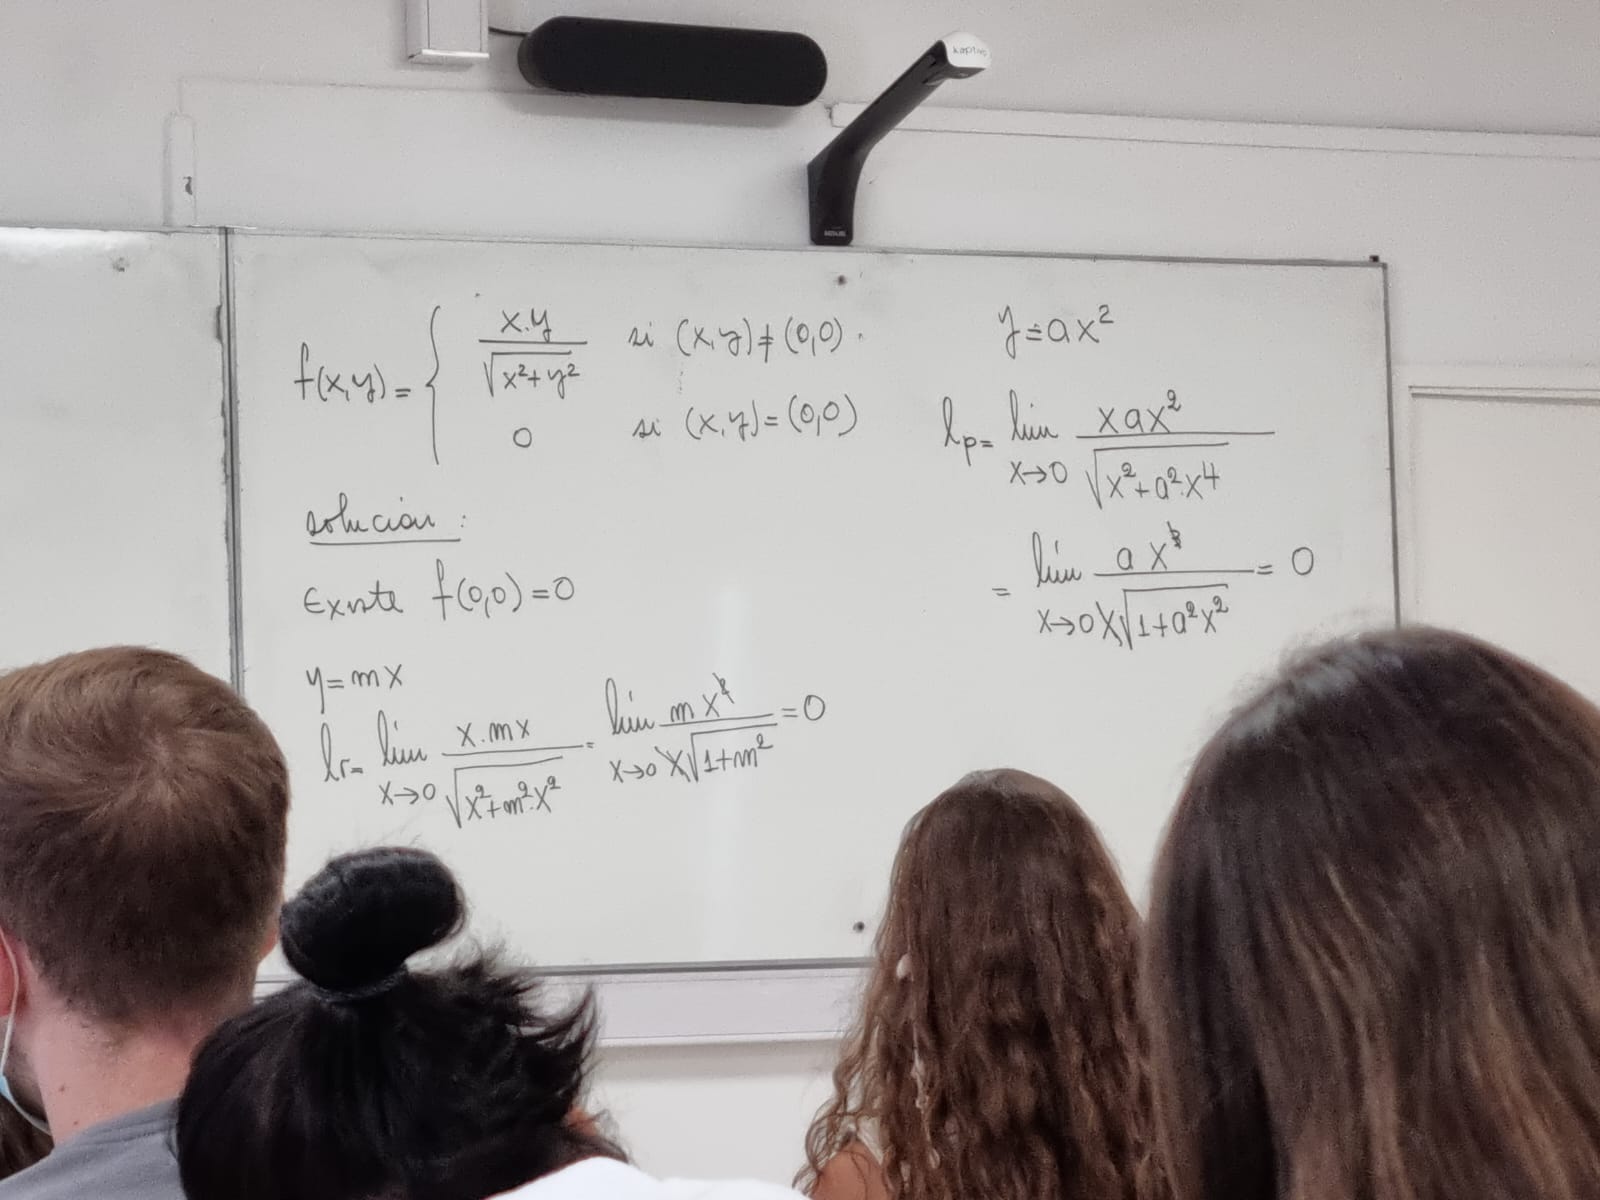 kaptivo
f(x,y) = { x.y / √x²+y² si (x,y) ≠ (0,0).
0 si (x,y) = (0,0)
solución:
Existe f(0,0)=0
y=mx
lr= lím x→0 x.mx / √x²+m².x² = lím x→0 mx² / x√1+m² =0
y=ax²
lp= lím x→0 xax² / √x²+a².x⁴
= lím x→0 ax³ / x√1+a²x² = 0